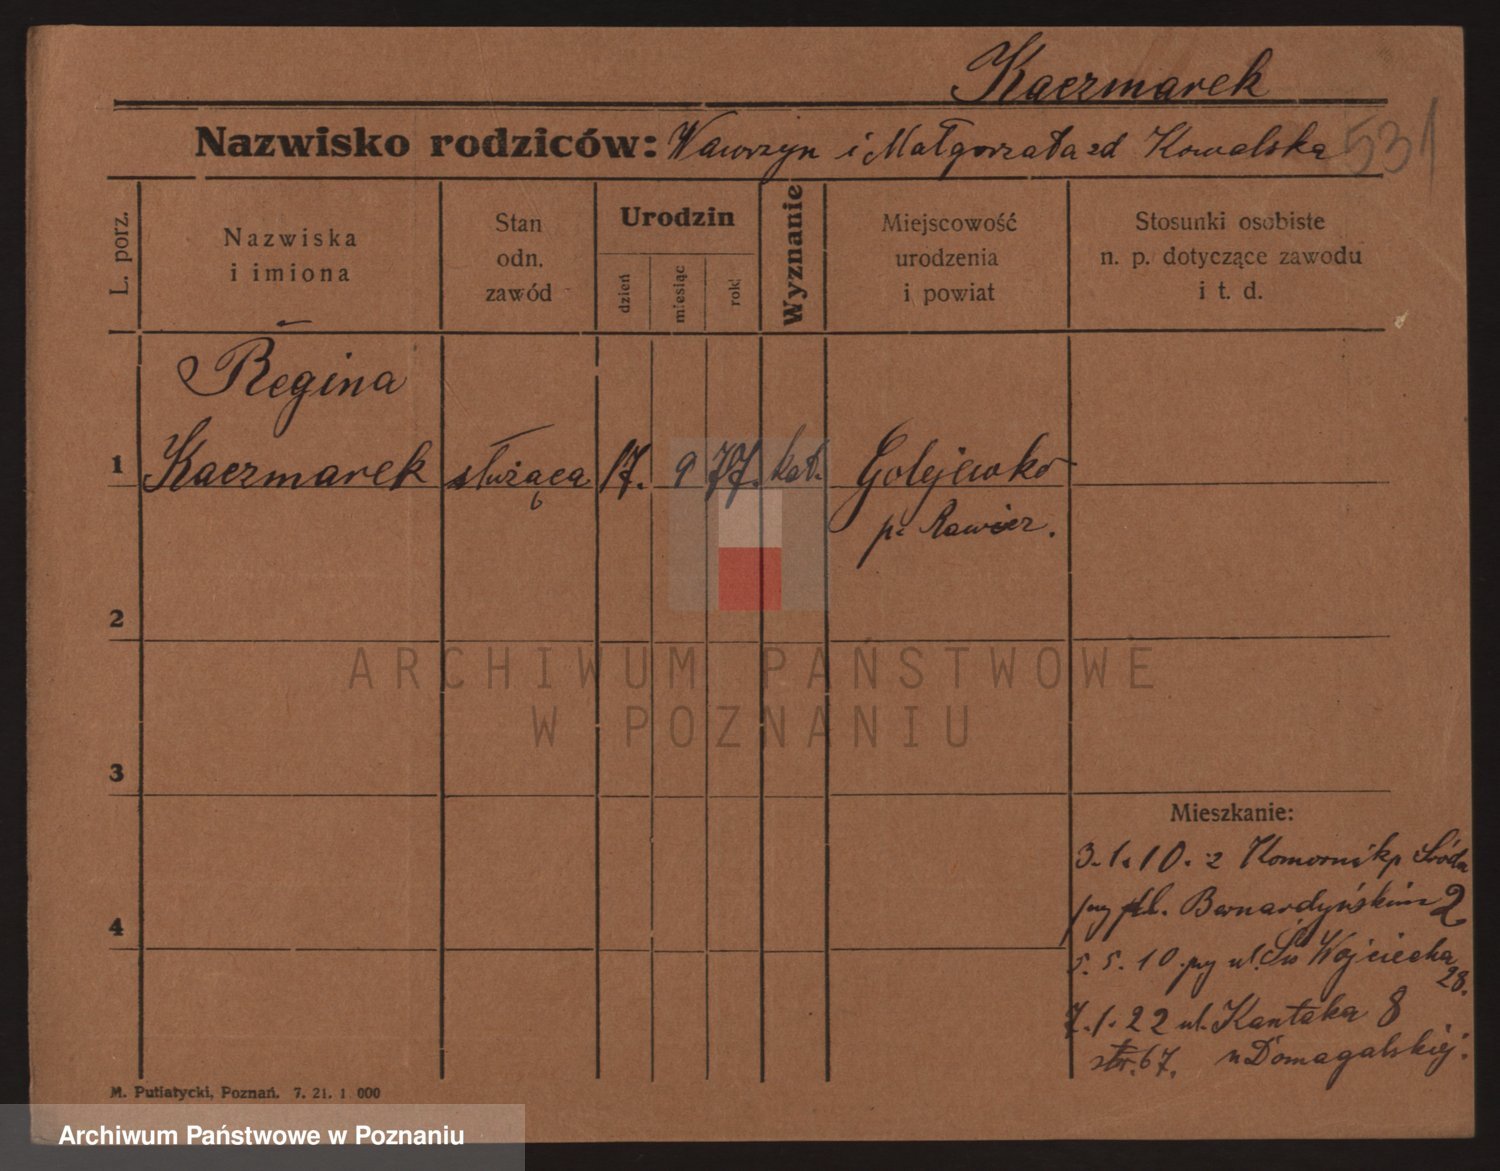 Kaczmarek
Nazwisko rodziców: Wawrzyn i Małgorzata zd Kowalska
531
L. porz.
Nazwiska
i imiona
Stan
odn.
zawód
Urodzin
dzień
miesiąc
rok
Wyznanie
Miejscowość
urodzenia
i powiat
Stosunki osobiste
n. p. dotyczące zawodu
i t. d.
Regina
1 Kaczmarek służąca 17. 9 77. kat. Golejewko
p. Rawicz.
2
ARCHIWUM PAŃSTWOWE
W POZNANIU
3
Mieszkanie:
3.1.10. z Komornik p Środa
przy pl. Bernardyńskim 2
4
5.5.10. przy ul. Św Wojciecha
28.
7.1.22 ul. Kantaka 8
str. 67. u Domagalskiej.
M. Putiatycki, Poznań. 7. 21. 1 000
Archiwum Państwowe w Poznaniu